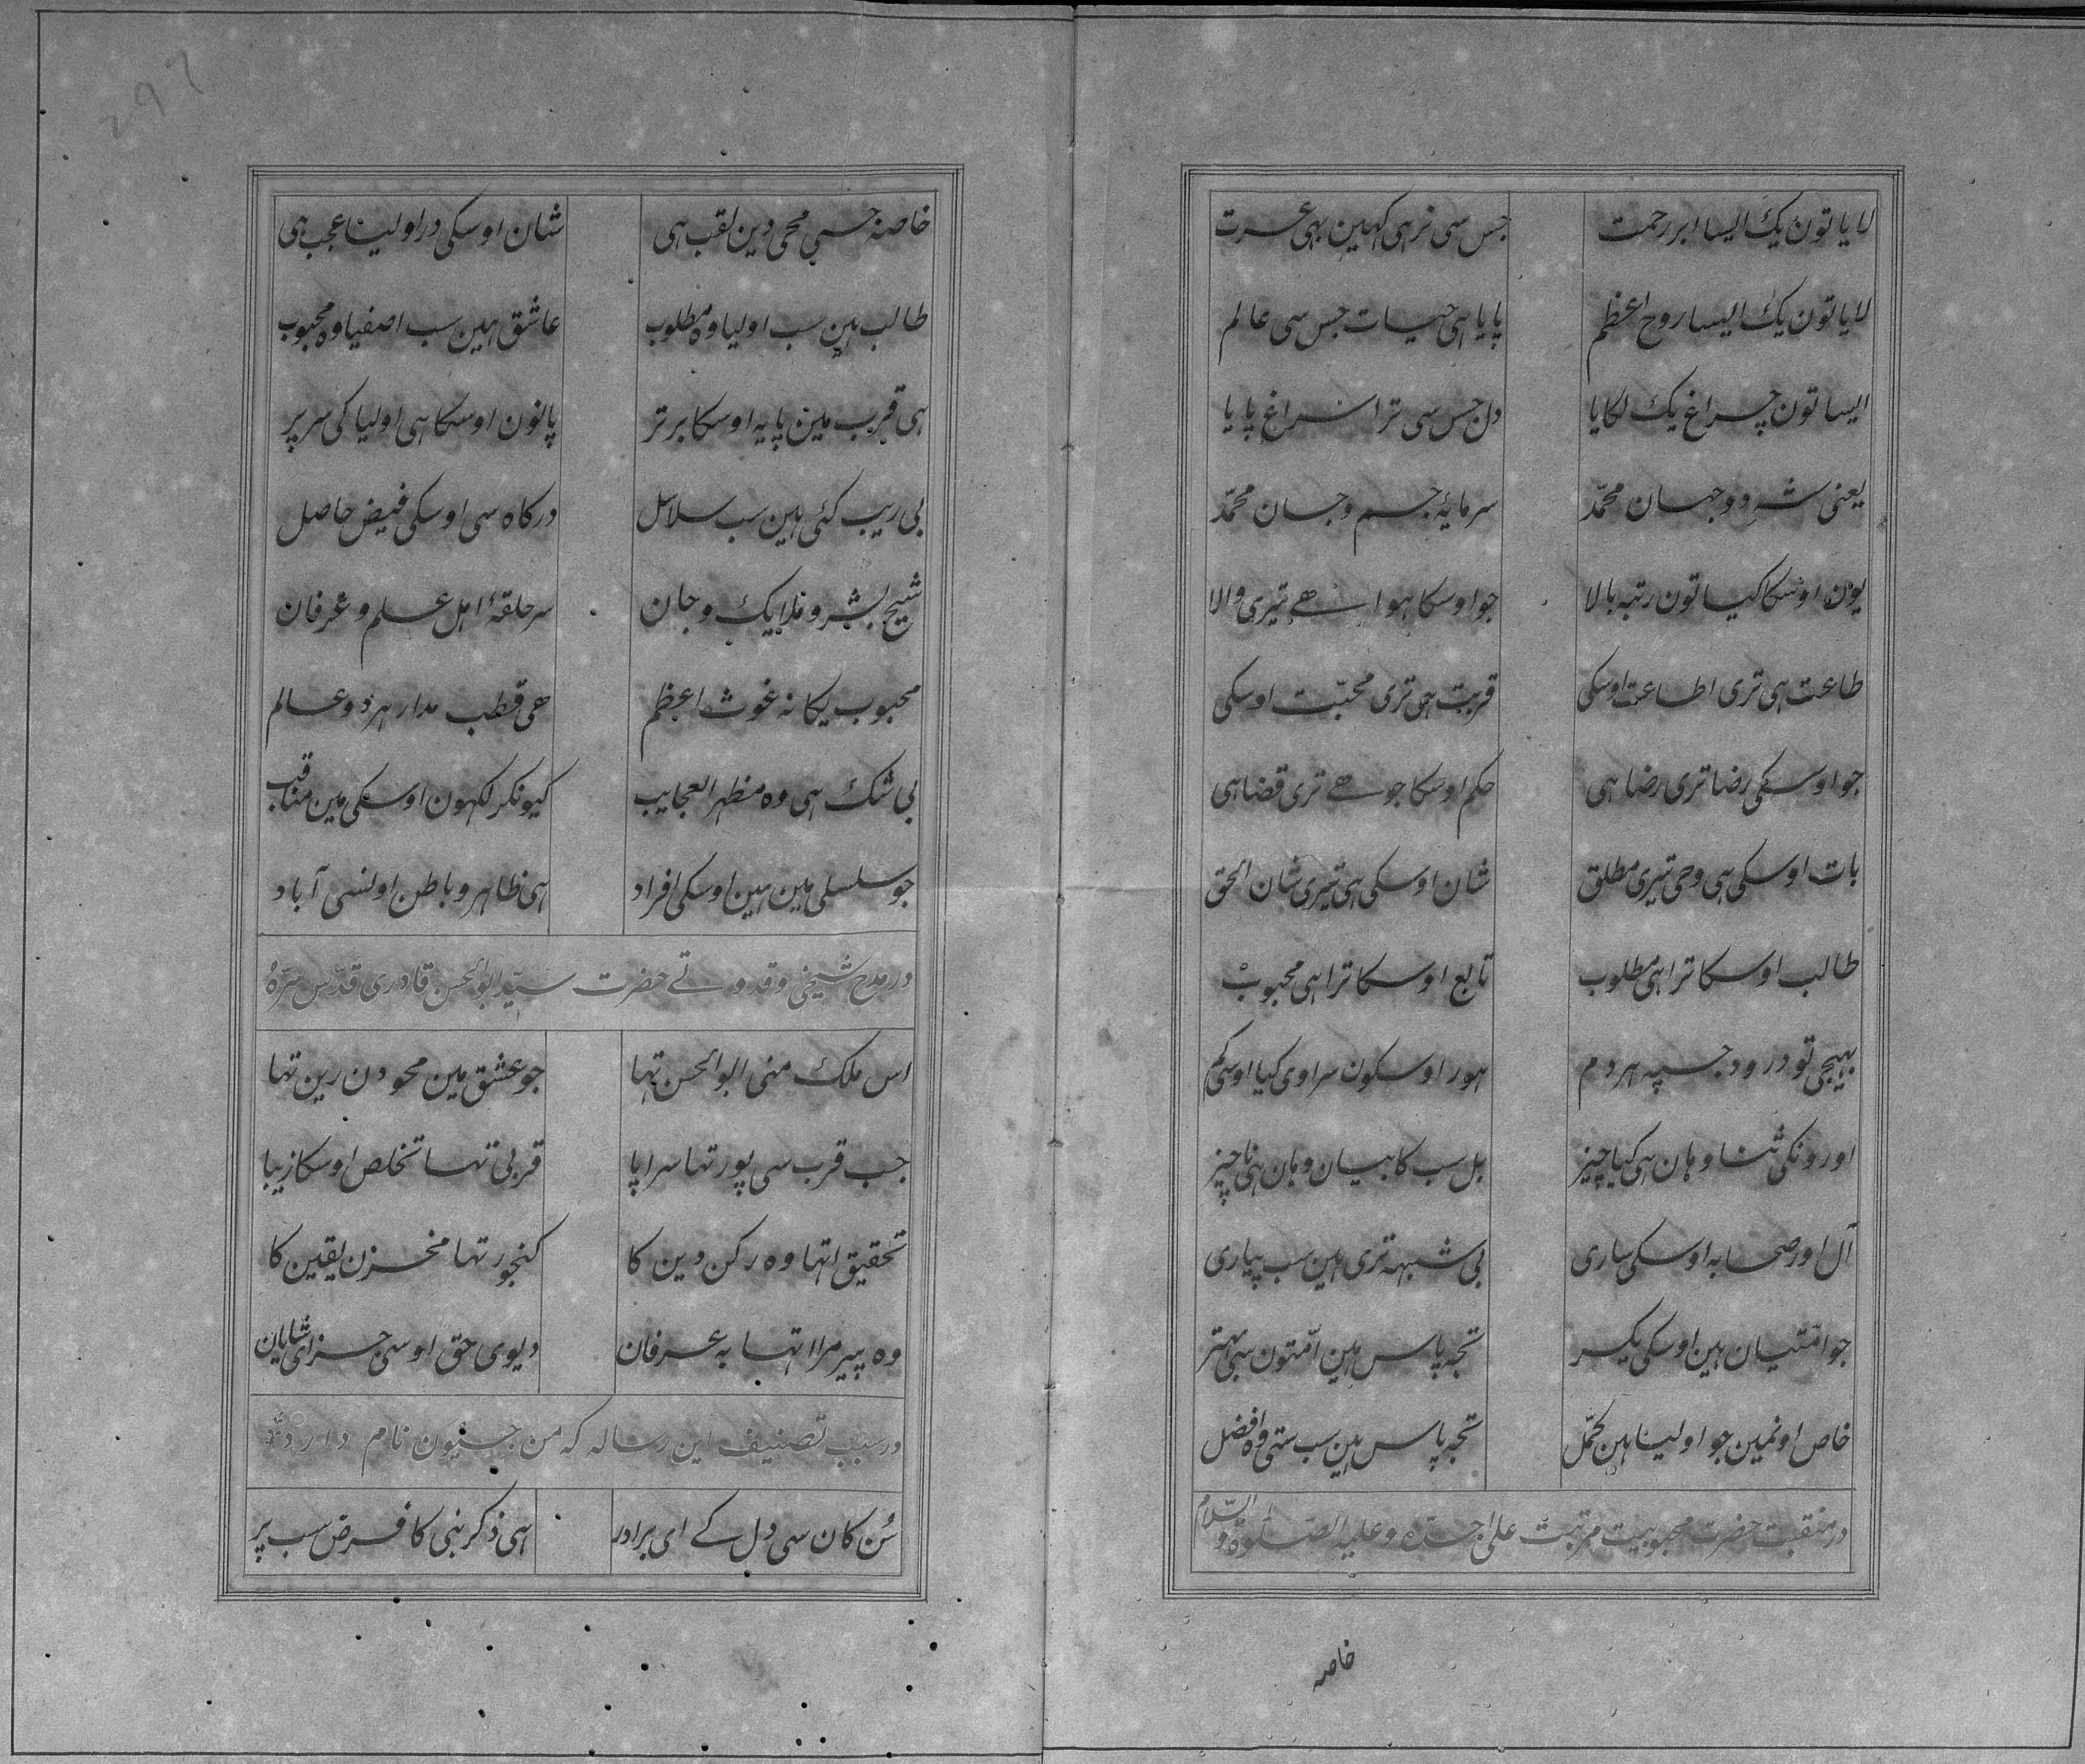 لایا تون یک ایسا ابر رحمت جس سی نرہی کہین بہی عسرت
لایا تون یک ایسا روح اعظم پایا ہی حیات جس سی عالم
ایسا تون چراغ یک لکایا دل جس سی ترا سراغ پایا
یعنی شہ دوجہان محمّد سرمایۂ جسم و جان محمّد
یون اوسکا کیا تون رتبہ بالا جو اوسکا ہوا سو ھے تیری والا
طاعت ہی تری اطاعت اوسکی قربت ہی تری محبّت اوسکی
جو اوسکی رضا تری رضا ہی حکم اوسکا جو ھے تری قضا ہی
بات اوسکی ہی وحی تیری مطلق شان اوسکی ہی تیری شان الحق
طالب اوسکا ترا ہی مطلوب تابع اوسکا ترا ہی محبوب
بہیجی تو درود جسپہ ہر دم ہور اوسکون سراوی کیا اوسی کم
اورونکی ثنا وہان ہی کیا چیز بل سب کا بیان وہان ہی ناچیز
آل اور صحابہ اوسکی ساری بی شبہہ تری ہین سب پیاری
جو امّتیان ہین اوسکی یکسر تجہ پاس ہین امّتون سی بہتر
خاص اونمین جو اولیا ہین کمّل تجہ پاس ہین سب ستی وہ افضل
در منقبت حضرت محبوبیت مرتبت علی جدّہ و علیہ الصّلوة والسّلام
خاصہ
خاصہ جسی محی دین لقب ہی شان اوسکی در اولیا عجب ہی
طالب ہین سب اولیا وہ مطلوب عاشق ہین سب اصفیا وہ محبوب
ہی قرب مین پایہ اوسکا برتر پانون اوسکا ہی اولیا کی سر پر
بی ریب کئی ہین سب سلاسل درکاہ سی اوسکی فیض حاصل
شیخ بشر و ملایک و جان سرحلقۂ اہل علم و عرفان
محبوب یکانہ غوث اعظم ھی قطب مدار ہر دو عالم
بی شک ہی وہ مظہر العجایب کیونکر لکہون اوسکی مین مناقب
جو سلسلی مین ہین اوسکی افراد ہی ظاہر و باطن اونسی آباد
در مدح شیخی و قدوتے حضرت سیّد ابوالحسن قادری قدّس سرّہ
اس ملک منی ابوالحسن تہا جو عشق مین محو دن رین تہا
جب قرب سی پور تہا سراپا قربی تہا تخلص اوسکا زیبا
تحقیق اتہا وہ رکن دین کا کنجور تہا مخزن یقین کا
وہ پیر مرا اتہا بہ عرفان دیوی حق اوسی جزای شایان
در سبب تصنیف این رسالہ کہ من جیون نام دارد
سُن کان سی دل کے ای برادر ہی ذکر نبی کا فرض سب پر